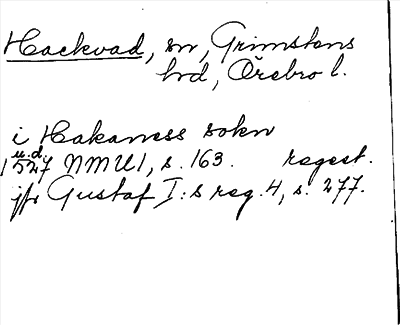 Hackvad, sn, Grimstens
hd, Örebro l.
i Hakaness sokn
u.d.
1527 NMU 1, s. 163. regest.
jfr Gustaf I:s reg. 4, s. 277.